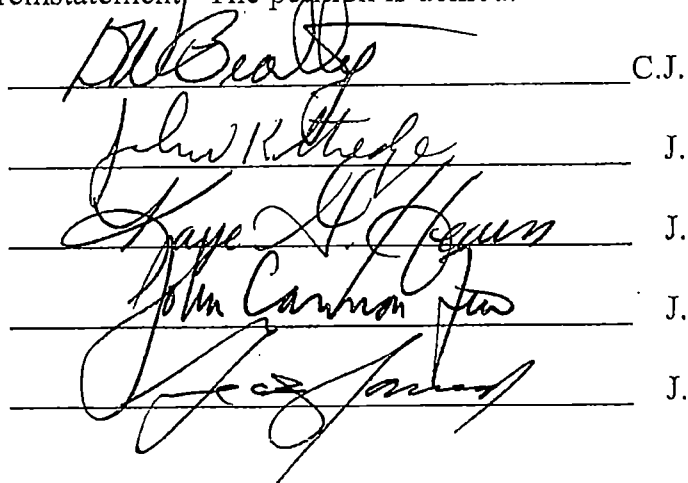 reinstatement. The petition is denied.
DW Beatty C.J.
John Kittredge J.
Kaye G. Hearn J.
John Cannon Few J.
J.